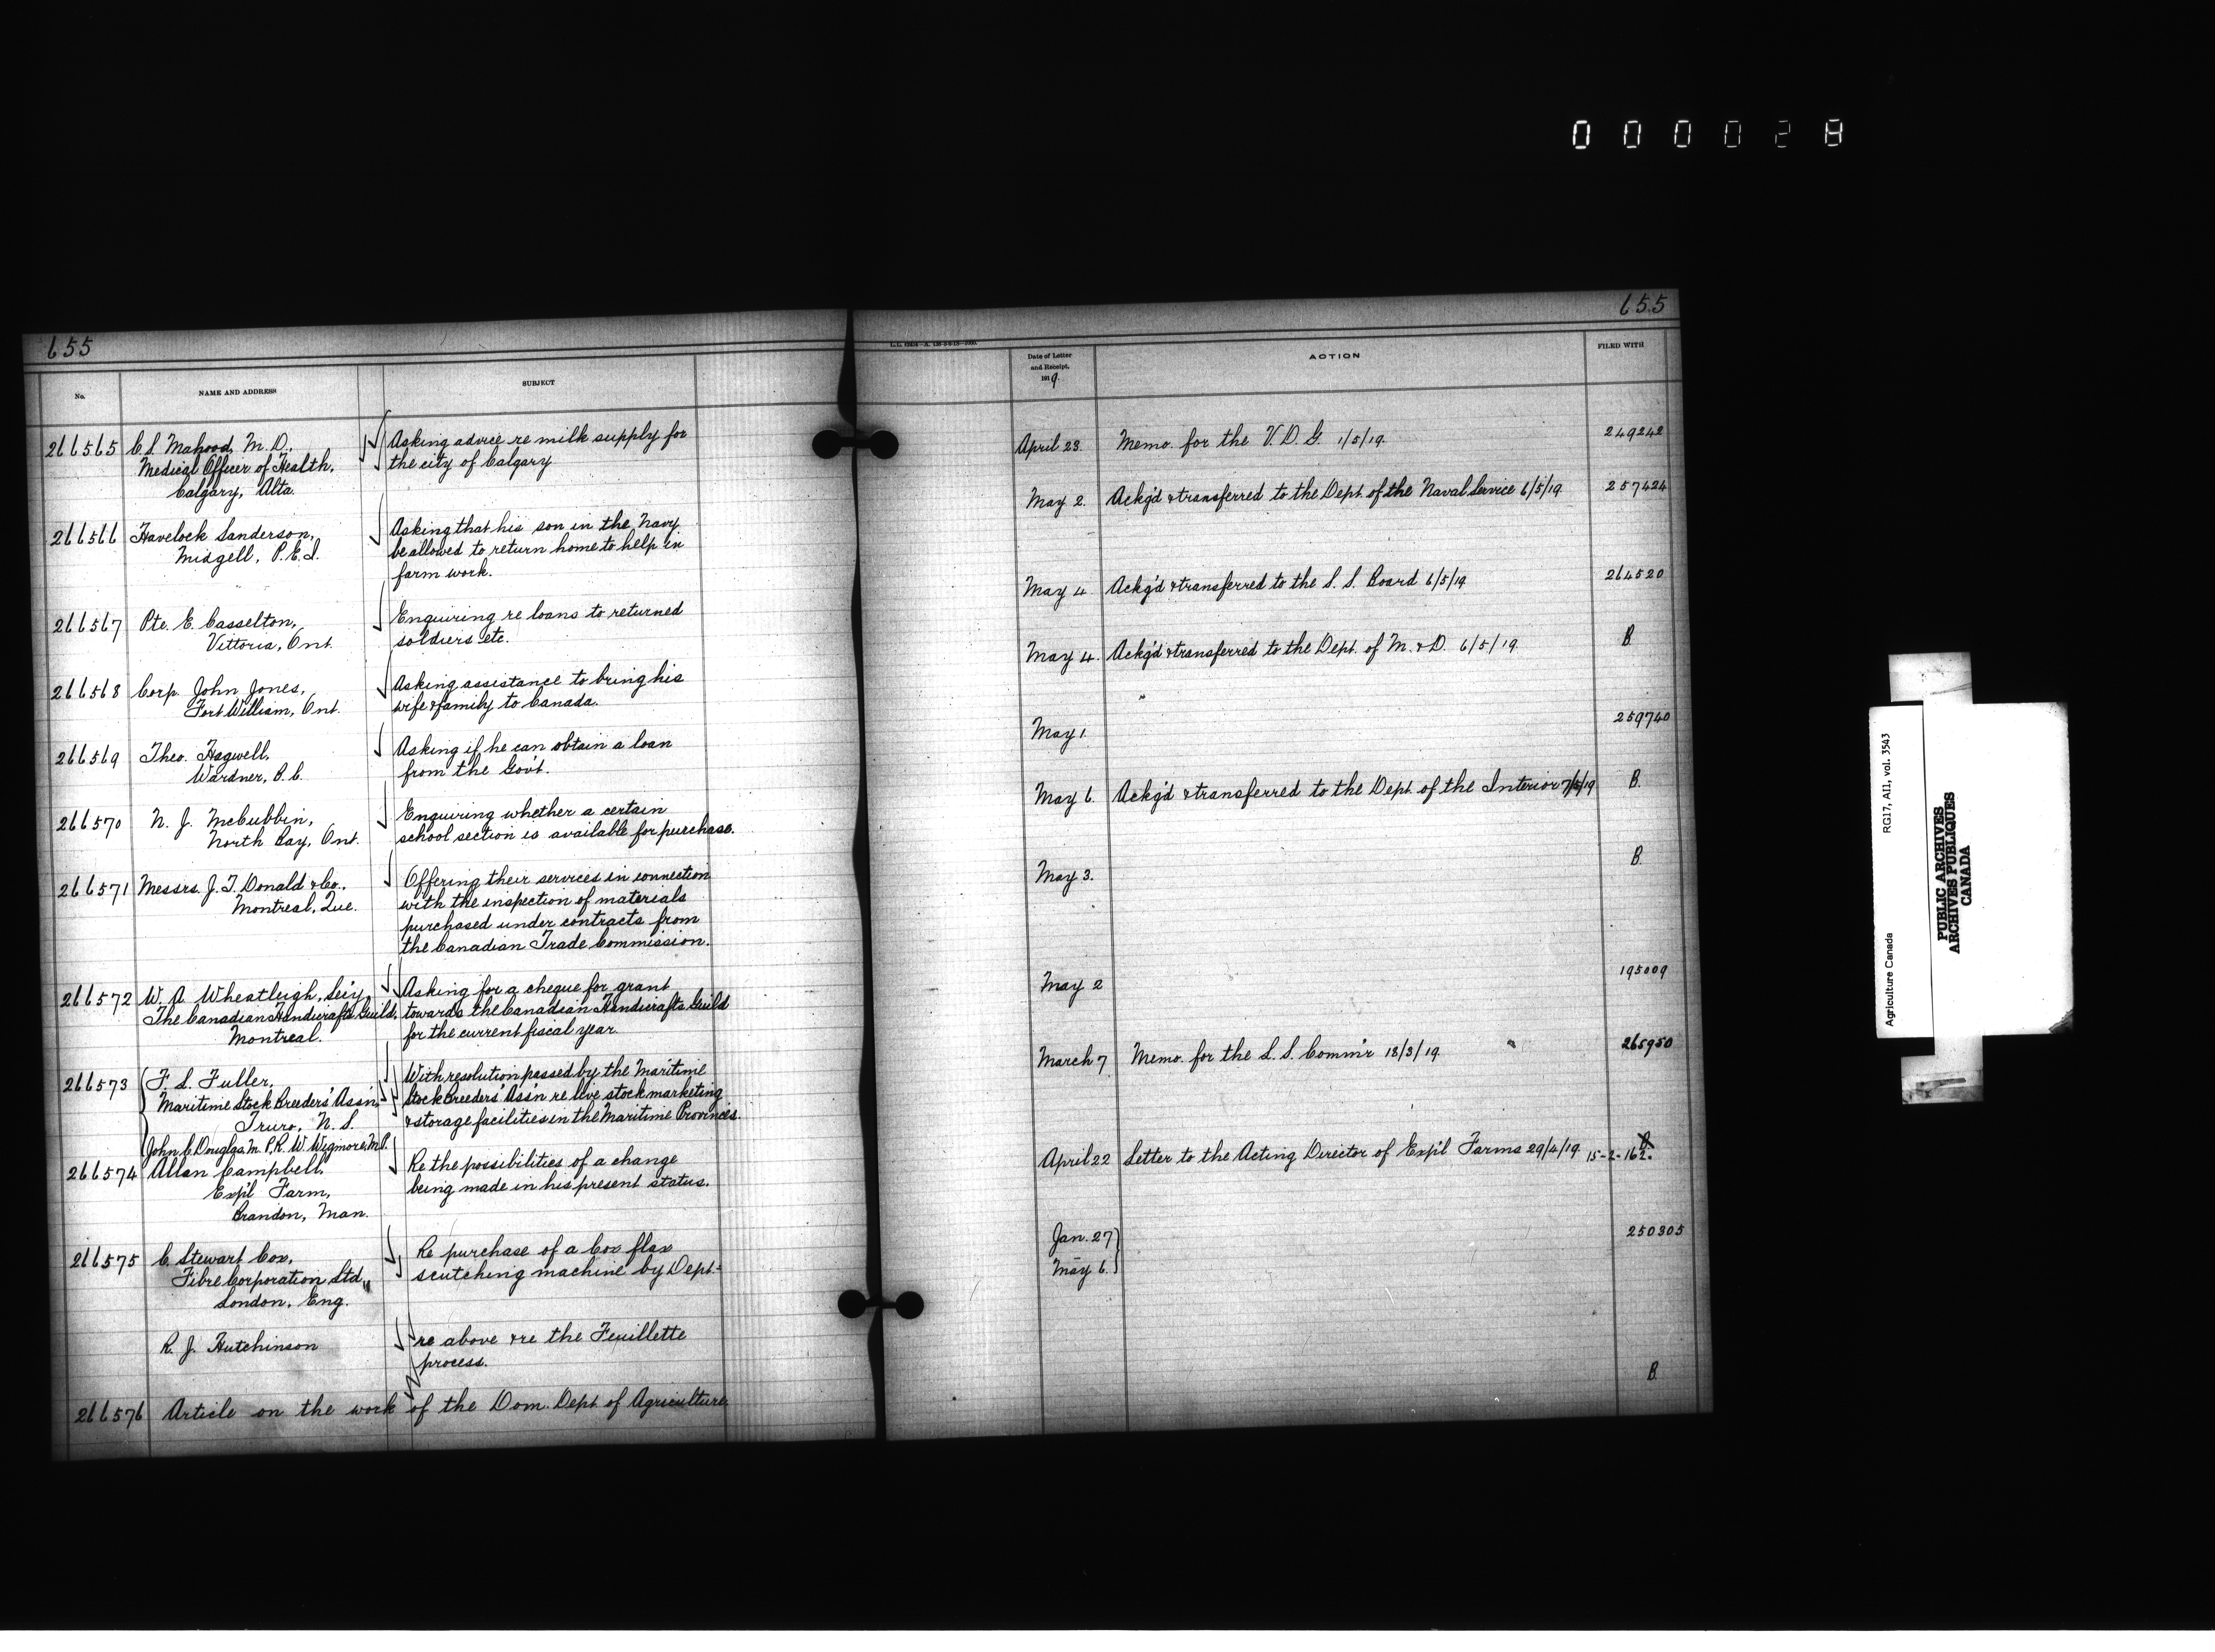 000028
655
No.
NAME AND ADDRESS
SUBJECT
266565
C. S. Mahood, M. D.,
Medical Officer of Health,
Calgary, Alta.
Asking advice re milk supply for
the city of Calgary
266566
Havelock Sanderson,
Midgell, P.E.I.
Asking that his son in the Navy
be allowed to return home to help in
farm work.
266567
Pte. E. Casselton,
Vittoria, Ont.
Enquiring re loans to returned
soldiers etc.
266568
Corp. John Jones,
Fort William, Ont.
Asking assistance to bring his
wife & family to Canada.
266569
Theo. Hagwell,
Wardner, B.C.
Asking if he can obtain a loan
from the Gov't.
266570
N. J. McCubbin,
North Bay, Ont.
Enquiring whether a certain
school section is available for purchase.
266571
Messrs. J. T. Donald & Co.,
Montreal, Que.
Offering their services in connection
with the inspection of materials
purchased under contracts from
the Canadian Trade Commission.
266572
W. A. Wheatleigh, Sec'y,
The Canadian Handicrafts Guild,
Montreal.
Asking for a cheque for grant
towards the Canadian Handicrafts Guild
for the current fiscal year.
266573
F. L. Fuller,
Maritime Stock Breeders' Ass'n,
Truro, N. S.
John C. Douglas M.P., R. W. Wigmore M.P.
With resolution passed by the Maritime
Stock Breeders' Ass'n re live stock marketing
& storage facilities in the Maritime Provinces.
266574
Allan Campbell,
Exp'l Farm,
Brandon, Man.
Re the possibilities of a change
being made in his present status.
266575
C. Stewart Cox,
Fibre Corporation Ltd.,
London, Eng.
Re purchase of a Cox flax
scutching machine by Dept.
R. J. Hutchinson
re above & re the Feuillette
process.
266576
Article on the work of the Dom. Dept. of Agriculture.
655
Date of Letter
and Receipt,
1919.
ACTION
FILED WITH
April 23.
Memo. for the V. D. G. 1/5/19.
249242
May 2.
Ackg'd & transferred to the Dept. of the Naval Service 6/5/19
257424
May 4.
Ackg'd & transferred to the S. S. Board 6/5/19
264520
May 4.
Ackg'd & transferred to the Dept. of M. & D. 6/5/19.
B.
May 1.
259740
May 6.
Ackg'd & transferred to the Dept. of the Interior 7/5/19
B.
May 3.
B.
May 2
195009
March 7
Memo. for the L. S. Comm'r 18/3/19.
265950
April 22
Letter to the Acting Director of Exp'l Farms 29/4/19.
15-2-162.
Jan. 27
May 6.
250305
B.
RG17, AII, vol. 3543
Agriculture Canada
PUBLIC ARCHIVES
ARCHIVES PUBLIQUES
CANADA